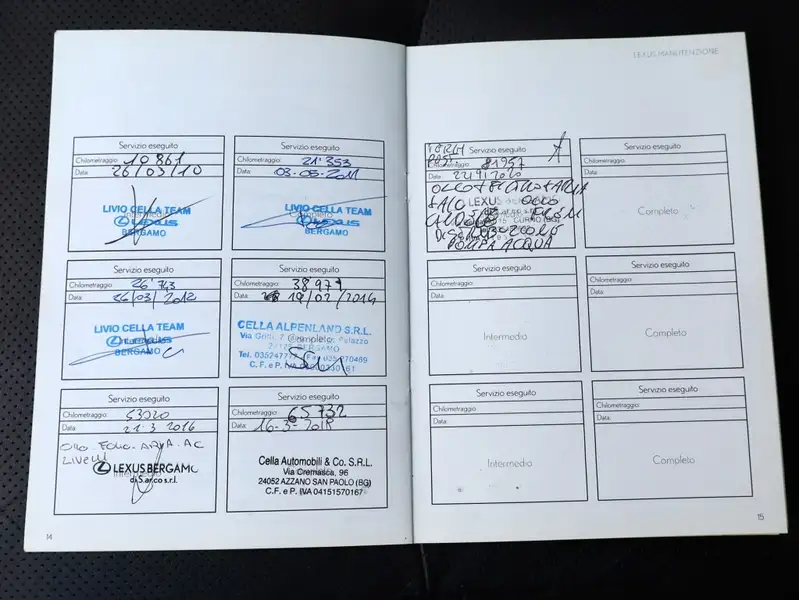 LEXUS MANUTENZIONE
Servizio eseguito
Chilometraggio: 10861
Data: 26/03/10
LIVIO CELLA TEAM
Lexus
BERGAMO
Servizio eseguito
Chilometraggio: 21'353
Data: 03-05-2011
LIVIO CELLA TEAM
Lexus
BERGAMO
Servizio eseguito
Chilometraggio: 26'743
Data: 26/03/2012
LIVIO CELLA TEAM
Lexus
BERGAMO
Servizio eseguito
Chilometraggio: 38971
Data: 19/02/2014
CELLA ALPENLAND S.R.L.
Completo
BERGAMO
C.F. e P. IVA
Servizio eseguito
Chilometraggio: 53020
Data: 21 3 2016
Olio FILTRO ARIA AC
Livelli
LEXUS BERGAMO
Intermedio
di S.arco s.r.l.
Servizio eseguito
Chilometraggio: 65732
Data: 16-3-2018
Cella Automobili & Co. S.R.L.
Via Cremasca, 96
24052 AZZANO SAN PAOLO (BG)
C.F. e P. IVA 04151570167
14
Servizio eseguito
Chilometraggio: 81957
Data: 22/9/2020
OLIO + FILTRO + ARIA
LEXUS
POMPA ACQUA
Servizio eseguito
Chilometraggio:
Data:
Completo
Servizio eseguito
Chilometraggio:
Data:
Intermedio
Servizio eseguito
Chilometraggio:
Data:
Completo
Servizio eseguito
Chilometraggio:
Data:
Intermedio
Servizio eseguito
Chilometraggio:
Data:
Completo
15